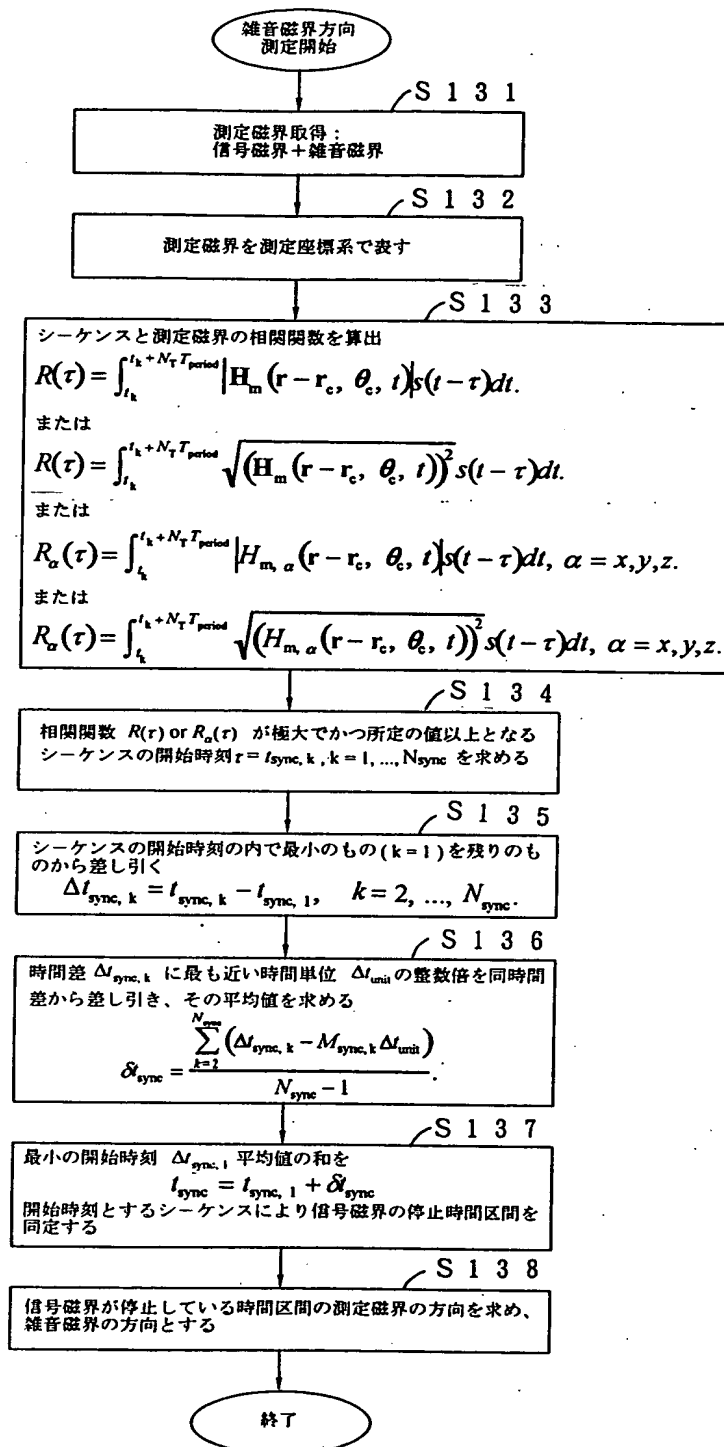 雑音磁界方向
測定開始
S 1 3 1
測定磁界取得：
信号磁界＋雑音磁界
S 1 3 2
測定磁界を測定座標系で表す
S 1 3 3
シーケンスと測定磁界の相関関数を算出
R(τ) = ∫_{t_k}^{t_k + N_T T_period} |H_m (r − r_c, θ_c, t)| s(t − τ)dt.
または
R(τ) = ∫_{t_k}^{t_k + N_T T_period} √((H_m (r − r_c, θ_c, t))^2) s(t − τ)dt.
または
R_α(τ) = ∫_{t_k}^{t_k + N_T T_period} |H_{m, α} (r − r_c, θ_c, t)| s(t − τ)dt, α = x,y,z.
または
R_α(τ) = ∫_{t_k}^{t_k + N_T T_period} √((H_{m, α} (r − r_c, θ_c, t))^2) s(t − τ)dt, α = x,y,z.
S 1 3 4
相関関数 R(τ) or R_α(τ) が極大でかつ所定の値以上となる
シーケンスの開始時刻 τ = t_{sync, k} , k = 1, ..., N_sync を求める
S 1 3 5
シーケンスの開始時刻の内で最小のもの ( k = 1 ) を残りのも
のから差し引く
Δt_{sync, k} = t_{sync, k} − t_{sync, 1}, k = 2, ..., N_sync.
S 1 3 6
時間差 Δt_{sync, k} に最も近い時間単位 Δt_unit の整数倍を同時間
差から差し引き、その平均値を求める
δt_sync = ∑_{k=2}^{N_sync} (Δt_{sync, k} − M_{sync, k} Δt_unit) / (N_sync − 1).
S 1 3 7
最小の開始時刻 Δt_{sync, 1} 平均値の和を
t_sync = t_{sync, 1} + δt_sync
開始時刻とするシーケンスにより信号磁界の停止時間区間を
同定する
S 1 3 8
信号磁界が停止している時間区間の測定磁界の方向を求め、
雑音磁界の方向とする
終了